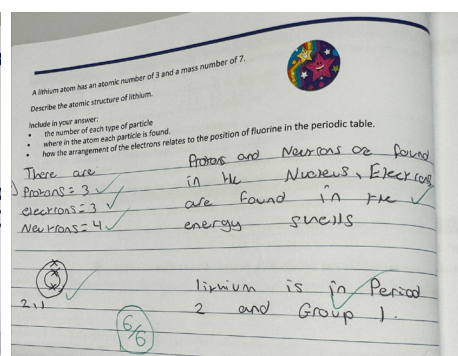 A lithium atom has an atomic number of 3 and a mass number of 7.
Describe the atomic structure of lithium.
Include in your answer:
• the number of each type of particle
• where in the atom each particle is found.
• how the arrangement of the electrons relates to the position of fluorine in the periodic table.
There are
Protons = 3
electrons = 3
Neutrons = 4
2,1
Protons and Neutrons are found
in the Nucleus, Electrons
are found in the
energy shells
lithium is in Period
2 and Group 1.
6/6